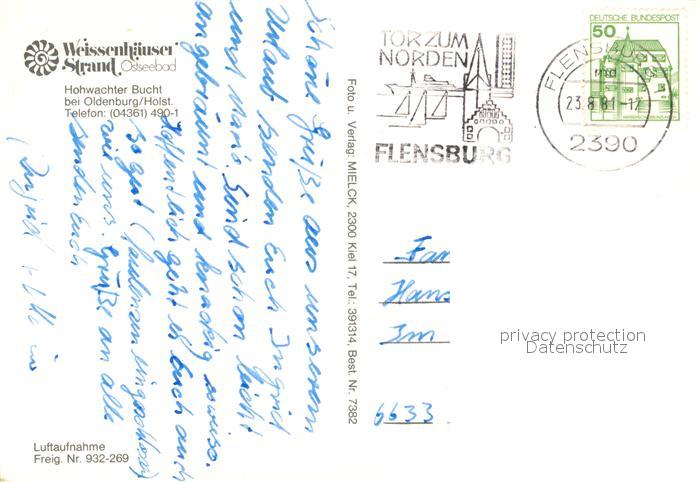 Weissenhäuser
Strand Ostseebad
Hohwachter Bucht
bei Oldenburg/Holst.
Telefon: (04361) 490-1
Schöne Grüße aus unserem
Urlaub senden Euch Ingrid
und Sind schon leicht
angebräunt und sowieso.
Hoffentlich geht es Euch auch
so gut
wie uns. Grüße an alle
senden Euch
Ingrid +
Luftaufnahme
Freig. Nr. 932-269
Foto u. Verlag: MIELCK, 2300 Kiel 17, Tel.: 391314, Best. Nr. 7382
TOR ZUM
NORDEN
FLENSBURG
DEUTSCHE BUNDESPOST
50
FLENSBURG
23.8.81-12
2390
Fam
Hans
Im
6633
privacy protection
Datenschutz